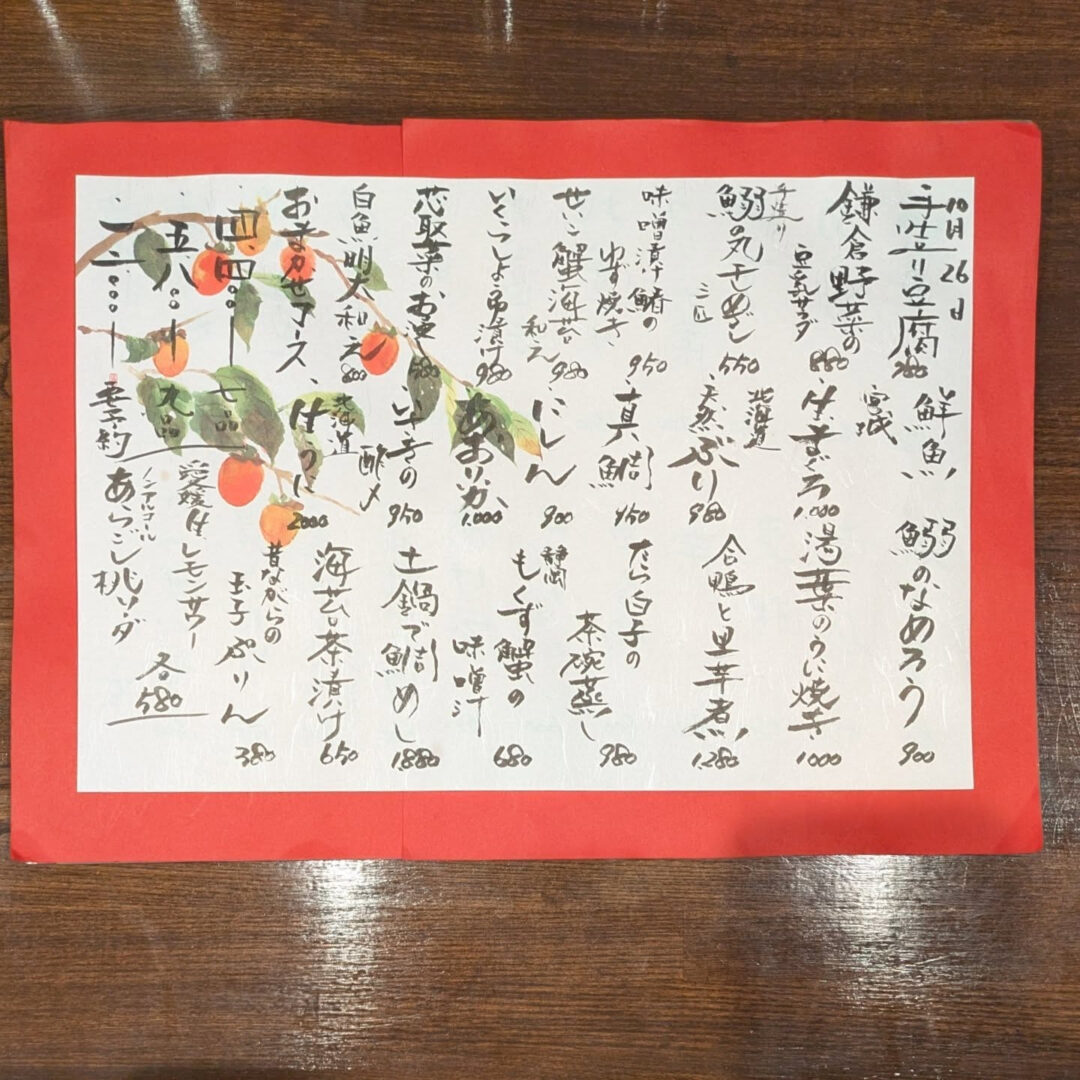 10月26日
手造り豆腐
780
鎌倉野菜の
豆乳サラダ
880
手造り
鰯の丸干めざし
三匹
550
味噌漬け鰆の
ゆず焼き
950
せいこ蟹海苔
和え
980
いくらしょう油漬け
980
芯取菜のお浸し
580
白魚明太和え
800
おまかせコース
四、四〇〇ー
七品
五、八〇〇ー
九品
一二、〇〇〇ー
要予約
鮮魚
宮城
生まぐろ
1,000
北海道
天然ぶり
980
真鯛
950
にしん
900
あおりいか
1,000
いさきの
酢〆
950
北海道
生うに
2000
鰯のなめろう
900
湯葉のうに焼き
1000
合鴨と里芋煮
1,280
たら白子の
茶碗蒸し
980
静岡
もくず蟹の
味噌汁
680
土鍋で鯛めし
1,880
海苔茶漬け
650
昔ながらの
玉子ぷりん
380
愛媛生レモンサワー
ノンアルコール
あらごし桃ソーダ
各580